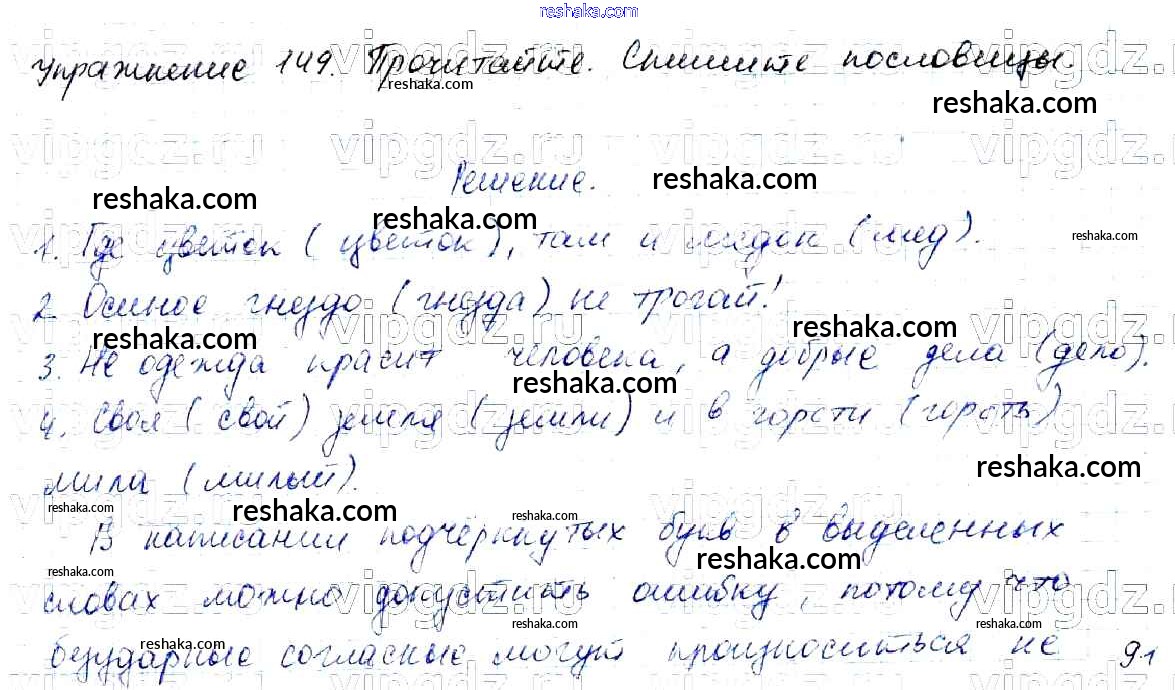 reshaka.com
Упражнение 149. Прочитайте. Спишите пословицы.
reshaka.com
reshaka.com
vipgdz.ru vipgdz.ru vipgdz.ru vipgdz
Решение.
reshaka.com
reshaka.com
reshaka.com
1. Где цветок (цветок), там и медок (мед).
reshaka.com
2. Осиное гнездо (гнёзда) не трогай!
reshaka.com
reshaka.com
3. Не одежда красит человека, а добрые дела (дело).
reshaka.com
4. Своя (свой) земля (земли) и в горсти (горсть)
мила (милый).
reshaka.com
reshaka.com
reshaka.com
reshaka.com
В написании подчёркнутых букв в выделенных
reshaka.com
reshaka.com
словах можно допустить ошибку, потому что
безударные согласные могут произноситься не
reshaka.com
reshaka.com
91